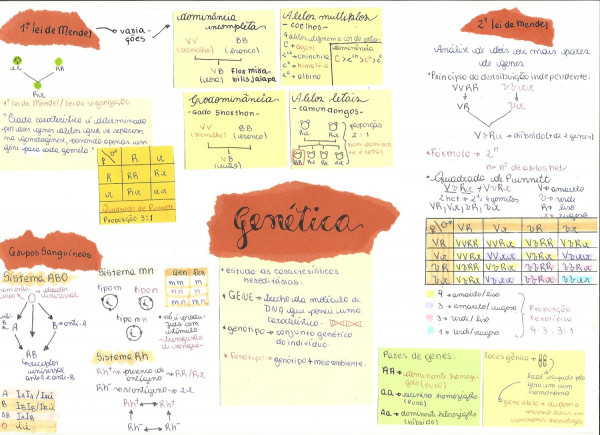 1ª lei de Mendel → varia-
ções
RR
Rr
1ª lei de Mendel/lei da segregação
"Cada característica é determinada
por dois genes alelos que se separam
na gametogênese, passando apenas um
gene para cada gameta."
R r
R RR Rr
r Rr rr
Quadrado de Punnett
Proporção 3:1
dominância
incompleta
VV BB
(vermelho) (branco)
VB
(rosa) Flor mira-
bilis jalapa
Codominância
- Gado Shorthon -
VV BB
(vermelho) (branco)
VB
(ruão)
Alelos multiplos
- coelhos -
4 alelos diferem a cor do pelo
C → aguti
→ chinchila
→ himalaia
→ albino
dominância
Alelos letais
- camundongos -
proporção
2:1
2ª lei de Mendel
Análise de dois ou mais pares
de genes
• Princípio da distribuição independente:
VV RR vv rr
VR vr
VvRr → diíbrido (2 genes)
• Fórmula → 2ⁿ
n = nº de alelos het.
• Quadrado de Punnett
VvRr × VvRr
2 het → 2² = 4 gametas
VR, Vr, vR, vr
V → amarelo
v → verde
R → liso
r → rugoso
VR Vr vR vr
VR VVRR VVRr VvRR VvRr
Vr VVRr VVrr VvRr Vvrr
vR VvRR VvRr vvRR vvRr
vr VvRr Vvrr vvRr vvrr
9 → amarelo/liso
3 → amarelo/rugoso
3 → verde/liso
1 → verde/rugoso
Proporção
fenotípica
9:3:3:1
Genética
• estuda as características
hereditárias.
• GENE → trecho da molécula de
DNA que possui uma
característica.
• genótipo → conjunto genético
do indivíduo.
• Fenótipo → genótipo + meio ambiente.
Grupos Sanguíneos
Sistema ABO
doador
universal
O
A B anti-A
AB
receptor
universal
A IAIA / IAi
B IBIB / IBi
AB IAIB
O ii
Sistema mn
Gen Fen
mm m
nn n
mn mn
tipo m tipo n
tipo mn
Sistema Rh
Rh⁺ → presença de
antígeno → RR/Rr
Rh⁻ → s/antígeno → rr
Rh⁺ ↔ Rh⁺
Rh⁻ ↔ Rh⁻
Pares de genes:
AA → dominante homozi-
goto (PURO)
aa → recessivo homozigoto
(PURO)
Aa → dominante heterozigoto
(híbrido)
locus gênico →
local ocupado pelo
gene em um
cromossomo
gene alelo → ocupam o
mesmo locus em
cromossomos homólogos